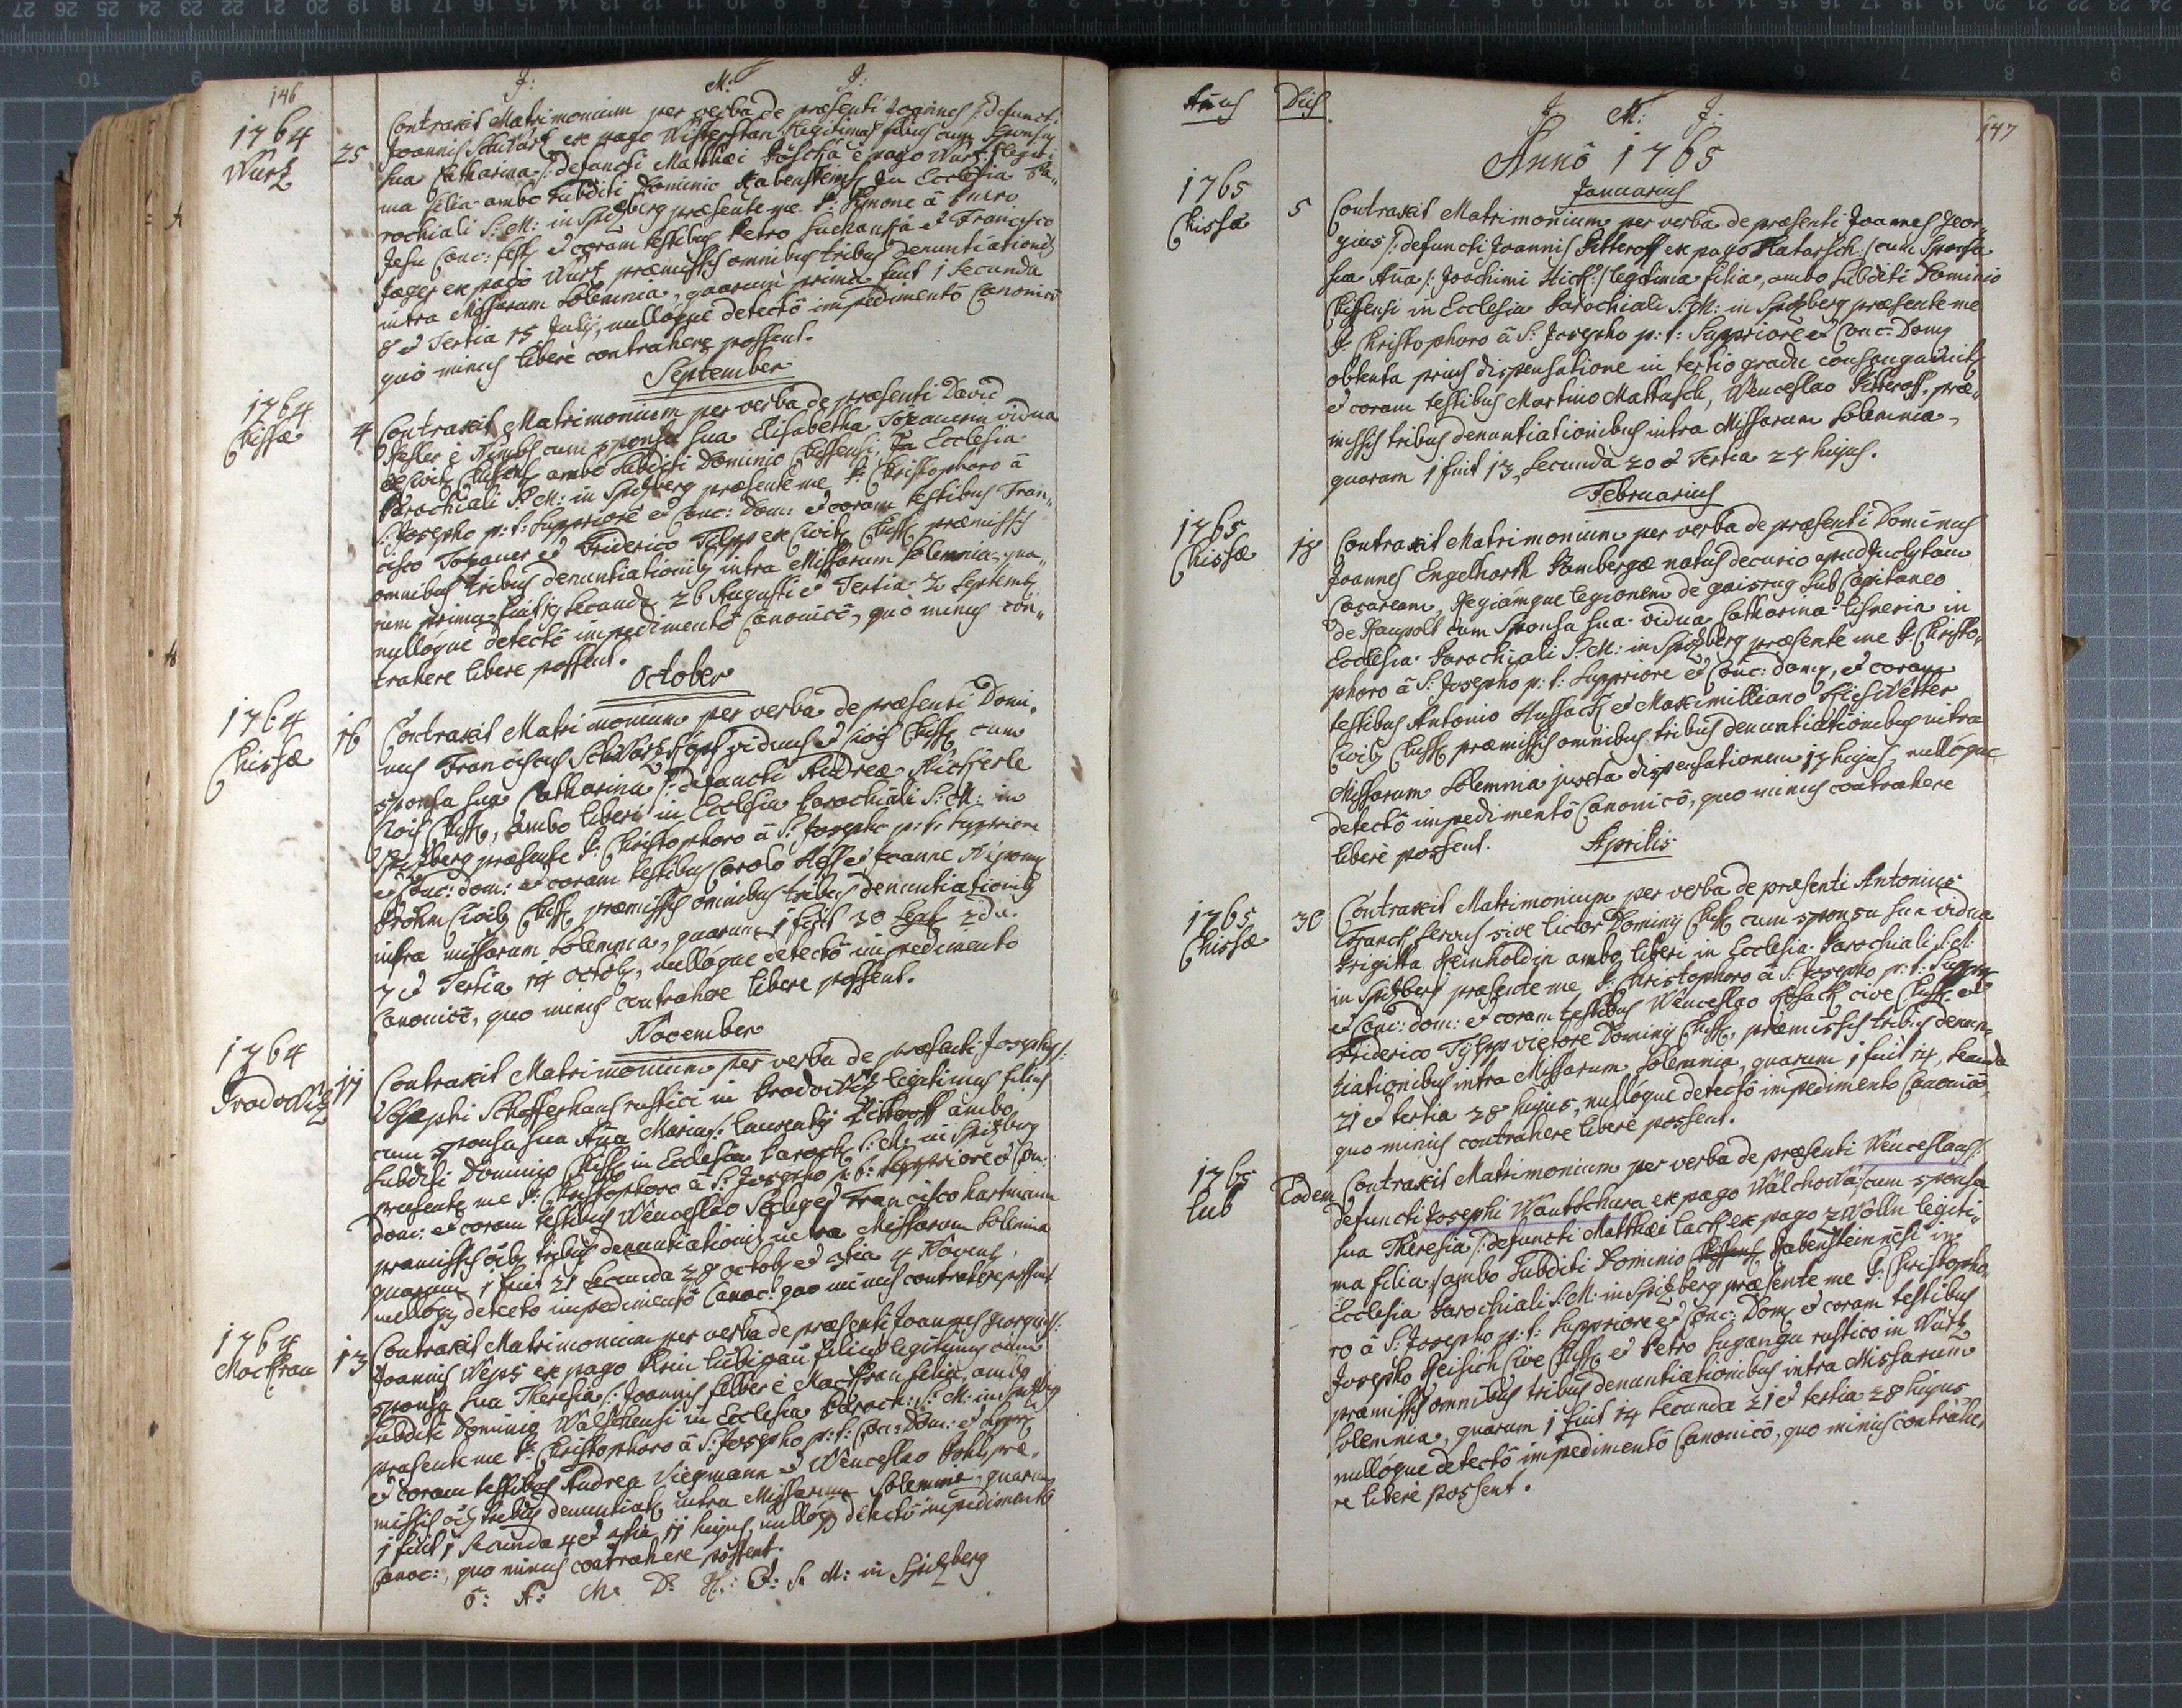 146
J: M: J:
1764
Wurtz
25
Contraxit Matrimonium per verba de præsenti Joannes /: defuncti
Joannis ex pago legitimus filius cum Sponsa
sua Catharina /: defuncti Matthæi e pago Wurtz /: legiti
ma filia ambo Subditi Dominio Rabenstein: In Ecclesia Pa„
rochiali S: M: in Spitzberg præsente me P: Simone à Puero
Jesu Conc: fest: et coram testibus Petro et Francisco
Jäger ex pago Wurtz præmissis omnibus tribus denuntiationib
intra Missarum Solemnia, quarum prima fuit 1 Secunda
8 et Tertia 15 Julij, nullóque detectô impedimentô Canonicô
quô minus liberè contrahere possent.
September
1764
Chissæ
4
Contraxit Matrimonium per verba de præsenti David
Kesler è cum sponsa sua Elisabetha vidua
ambo Subditi Dominio Chissensi, In Ecclesia
Parochiali S: M: in Spitzberg præsente me P: Christophoro à
S: Josepho p: t: Suppriore et Conc: Dom: et coram testibus Fran„
cisco Topauer et Friderico ex Civit Chiss præmissis
omnibus tribus denuntiationib intra Missarum Solemnia, qua„
rum prima fuit 19 Secunda 26 Augusti et Tertia 2 Septemb
nullóque detectô impedimentô Canonicô, quô minus con„
trahere libere possent.
October
1764
Chissæ
16
Contraxit Matrimonium per verba de præsenti Domi„
nus Franciscus viduus et Civis Chiss cum
sponsa sua Catharina /: defuncti Andreæ
Civis Chiss, ambo liberi in Ecclesia Parochiali S: M: in
Spitzberg præsente P: Christophoro à S: Josepho p: t: Suppriore
et Conc: dom: et coram testibus Carolo et Joanne Nepom
Böhm Civib Chiss præmissis omnibus tribus denuntiationib
intra missarum Solemnia, quarum 1 fuit 30 Sept 2da
7 et Tertia 14 Octob, nullóque detectô impedimento
Canonicô, quo minus contrahere libere possent.
November
1764
11
Contraxit Matrimonium per verba de præsenti Josephus /:
Josephi rustici in legitimus filius
cum sponsa sua Anna Maria /: Laurentij Pitteroff ambo
Subditi Dominio Chiss in Ecclesia Paroch S: M: in Spitzberg
præsente me P: Christophoro à S: Josepho p: t: Suppriore et Con:
dom: et coram testibus Wenceslao et Francisco Hartmann
præmissis oib tribus denuntiationib intra Missarum Solemnia
quarum 1 fuit 21 Secunda 28 Octob et 3tia 4 Novemb,
nullóq detecto impedimentô Canoc: quo minus contrahere possent
1764
Mockrau
13
Contraxit Matrimonium per verba de præsenti Joannes Georgius /:
Joannis ex pago Klein filius legitimus cum
sponsa sua Theresia /: Joannis è Mockrau filia, ambo
Subditi Dominio in Ecclesia Paroch: S: M: in Spitzberg
præsente me P: Christophoro à S: Josepho p: t: Conc: Dom: et Suppr
et coram testibus Andrea Wiegmann et Wenceslao præ„
missis oib tribus denuntiat intra Missarum Solemnia, quarum
1 fuit 1 Secunda 4 et 3tia 11 hujus, nullóq detectô impedimento
Canoc:, quo minus contrahere possent.
O: A: M: D: H: E: S: M: in Spitzberg
Annus
Dies
J: M: J:
147
Annô 1765
Januarius
1765
Chissæ
5
Contraxit Matrimonium per verba de præsenti Joannes Geor„
gius /: defuncti Joannis Pitteroff ex pago : / cum Sponsa
sua Anna /: Joachimi : / legitima filia, ambo Subditi Dominio
Chissensi in Ecclesia Parochiali S: M: in Spitzberg præsente me
P: Christophoro à S: Josepho p: t: Suppriore et Conc: Dom
obtenta prius dispensatione in tertio gradu consanguinit
et coram testibus Martino Mattasch, Wenceslao Pitteroff, præ„
missis tribus denuntiationibus intra Missarum Solemnia,
quarum 1 fuit 13, Secunda 20 et Tertia 27 hujus.
Februarius
1765
Chissæ
18
Contraxit Matrimonium per verba de præsenti Dominus
Joannes Engelharth Bambergæ natus decurio apud Inclytam
Cæsaream, Regiámque legionem de gaisrug sub Capitaneo
de Haupolt cum Sponsa sua vidua Catharina in
Ecclesia Parochiali S: M: in Spitzberg præsente me P: Christo„
phoro à S: Josepho p: t: Suppriore et Conc: dom, et coram
testibus Antonio et Maximilliano
Civib Chiss præmissis omnibus tribus denuntiationibus intra
Missarum Solemnia juxta dispensationem 17 hujus, nullóque
detectô impedimentô Canonicô, quo minus contrahere
liberè possent.
Aprilis
1765
Chissæ
30
Contraxit Matrimonium per verba de præsenti Antonius
Franck servus sive lictor Dominij Chiss cum sponsa sua vidua
Brigitta Reinholdin ambo liberi in Ecclesia Parochiali S: M:
in Spitzberg præsente me P: Christophoro à S: Josepho p: t: Suppr
et Conc: dom: et coram testibus Wenceslao cive Chiss et
Friderico vietore Dominij Chiss, præmissis tribus denun„
tiationibus intra Missarum Solemnia, quarum 1 fuit 14, Secunda
21 et tertia 28 hujus, nullóque detectô impedimento Canonicô,
quo minus contrahere liberè possent.
1765
Lub
Eodem
Contraxit Matrimonium per verba de præsenti Wenceslaus /:
defuncti Josephi Wantschura ex pago Walchowa :/ cum sponsa
sua Theresia /: defuncti Matthæi Lach ex pago Zwölln legiti„
ma filia :/ ambo Subditi Dominio Chissens Rabensteinensi in
Ecclesia Parochiali S: M: in Spitzberg præsente me P: Christopho„
ro à S: Josepho p: t: Suppriore et Conc: Dom et coram testibus
Josepho Reisich Cive Chiss et Petro rustico in Wurtz
præmissis omnibus tribus denuntiationibus intra Missarum
Solemnia, quarum 1 fuit 14 Secunda 21 et tertia 28 hujus
nullóque detectô impedimentô Canonicô, quo minus contrahe„
re liberè possent.